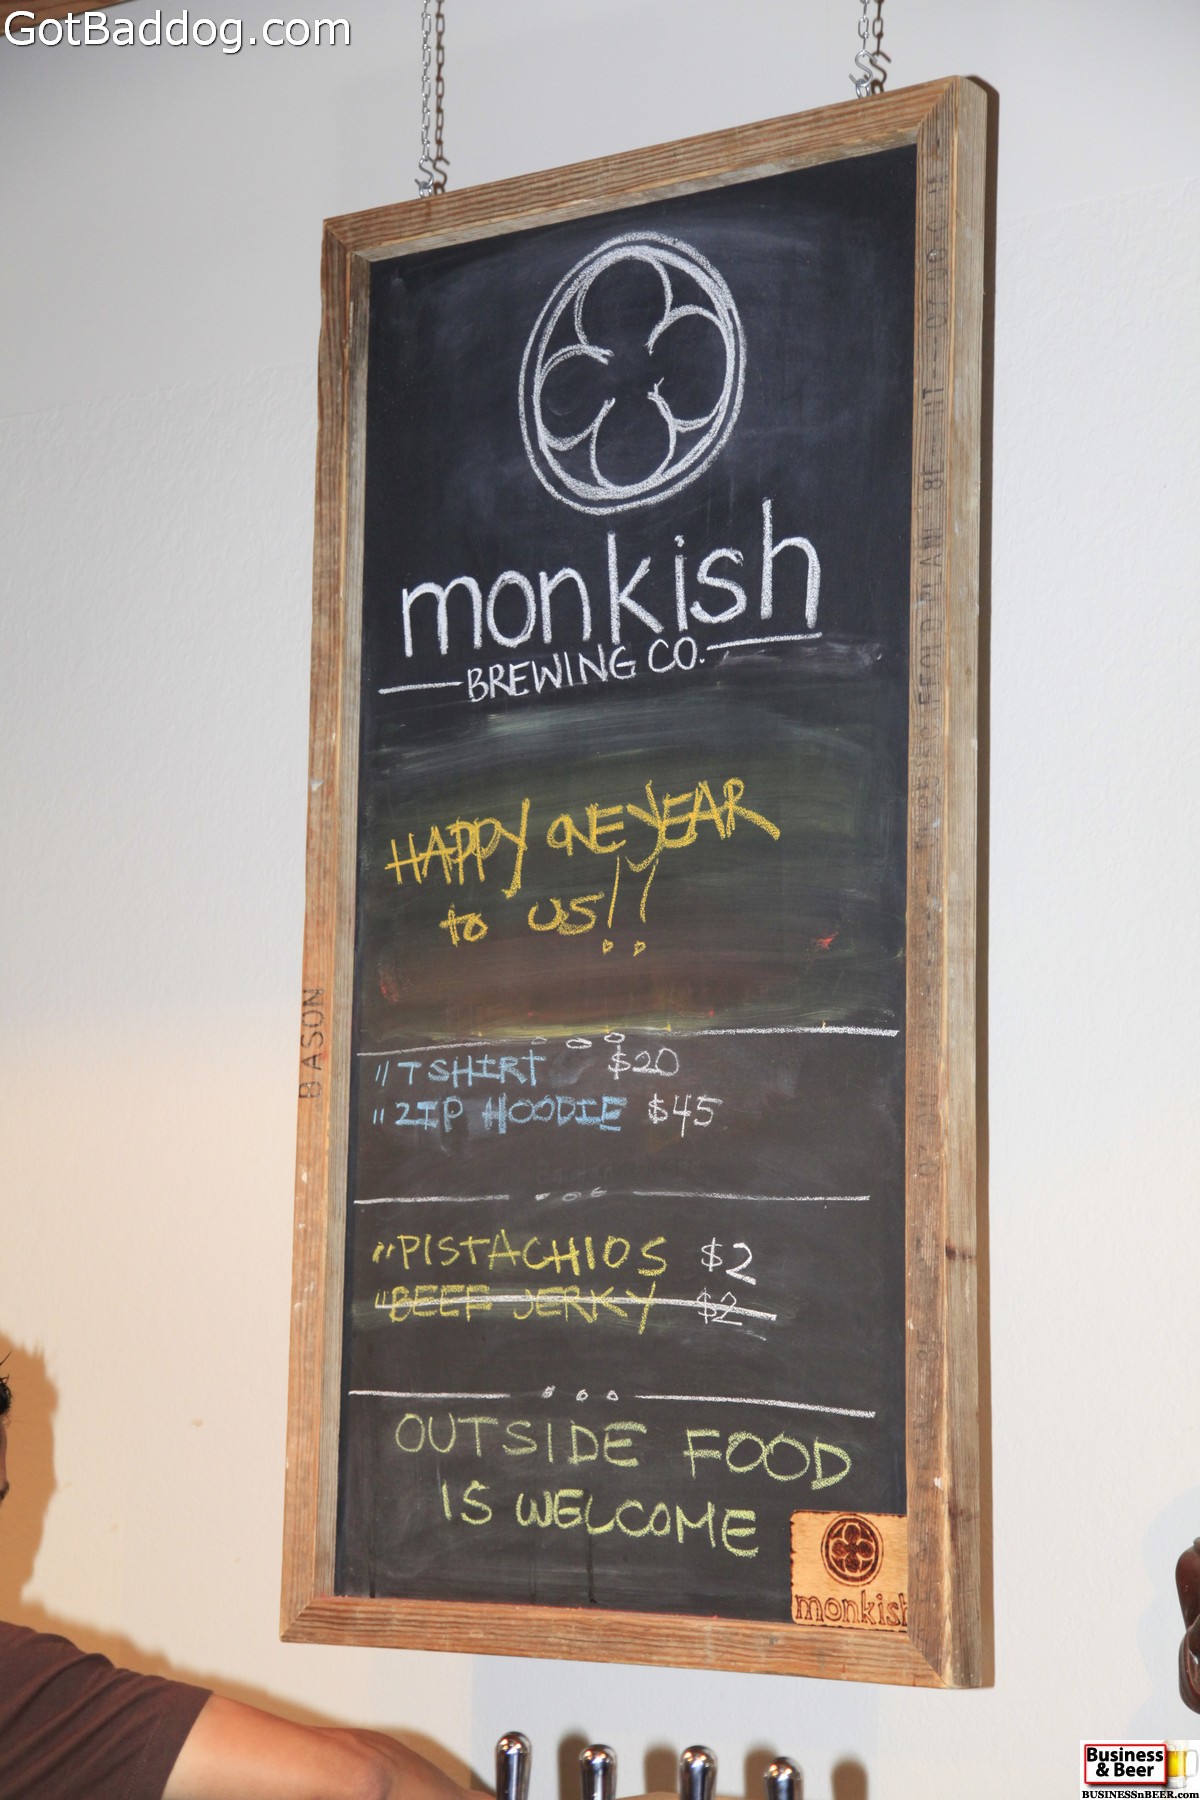 GotBaddog.com
monkish
BREWING CO.
HAPPY ONE YEAR
to US!!
"TSHIRT $20
"ZIP HOODIE $45
"PISTACHIOS $2
"BEEF JERKY $2
OUTSIDE FOOD
IS WELCOME
monkish
BASON
Business
& Beer
BUSINESSnBEER.com